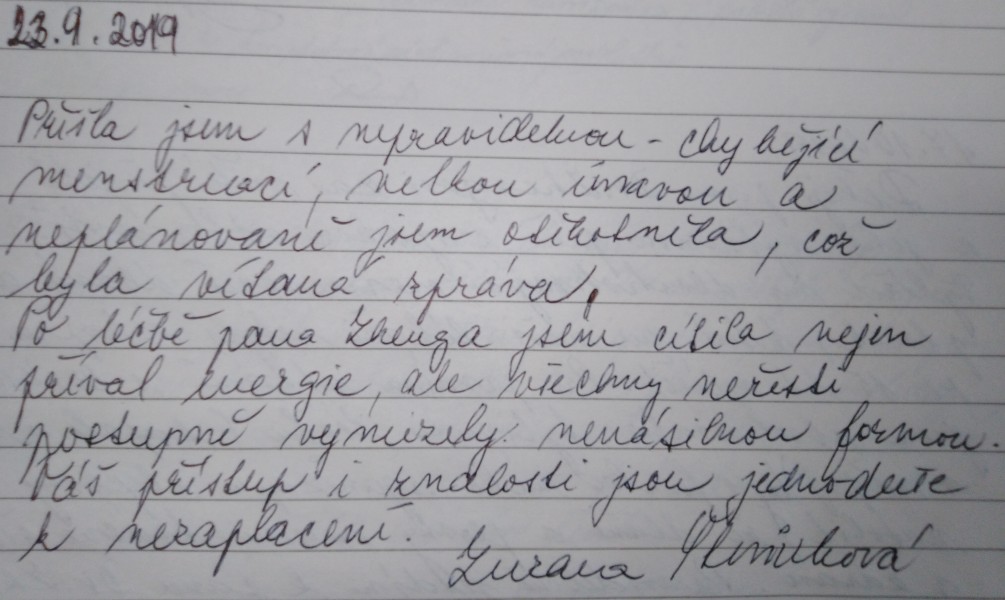 23.9.2019
Přišla jsem s nepravidelnou - chybějící
menstruací, velkou únavou a
neplánovaně jsem otěhotněla, což
byla vítaná zpráva.
Po léčbě pana Zhenga jsem cítila nejen
příval energie, ale všechny neřesti
postupně vymizely nenásilnou formou.
Váš přístup i znalosti jsou jednoduše
k nezaplacení.
Zuzana